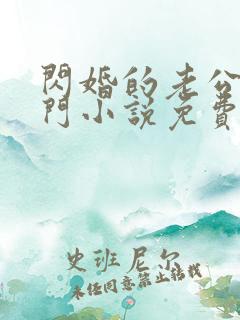 閃婚的老公
門小說免費
史班尼尔
未经同意禁止转载